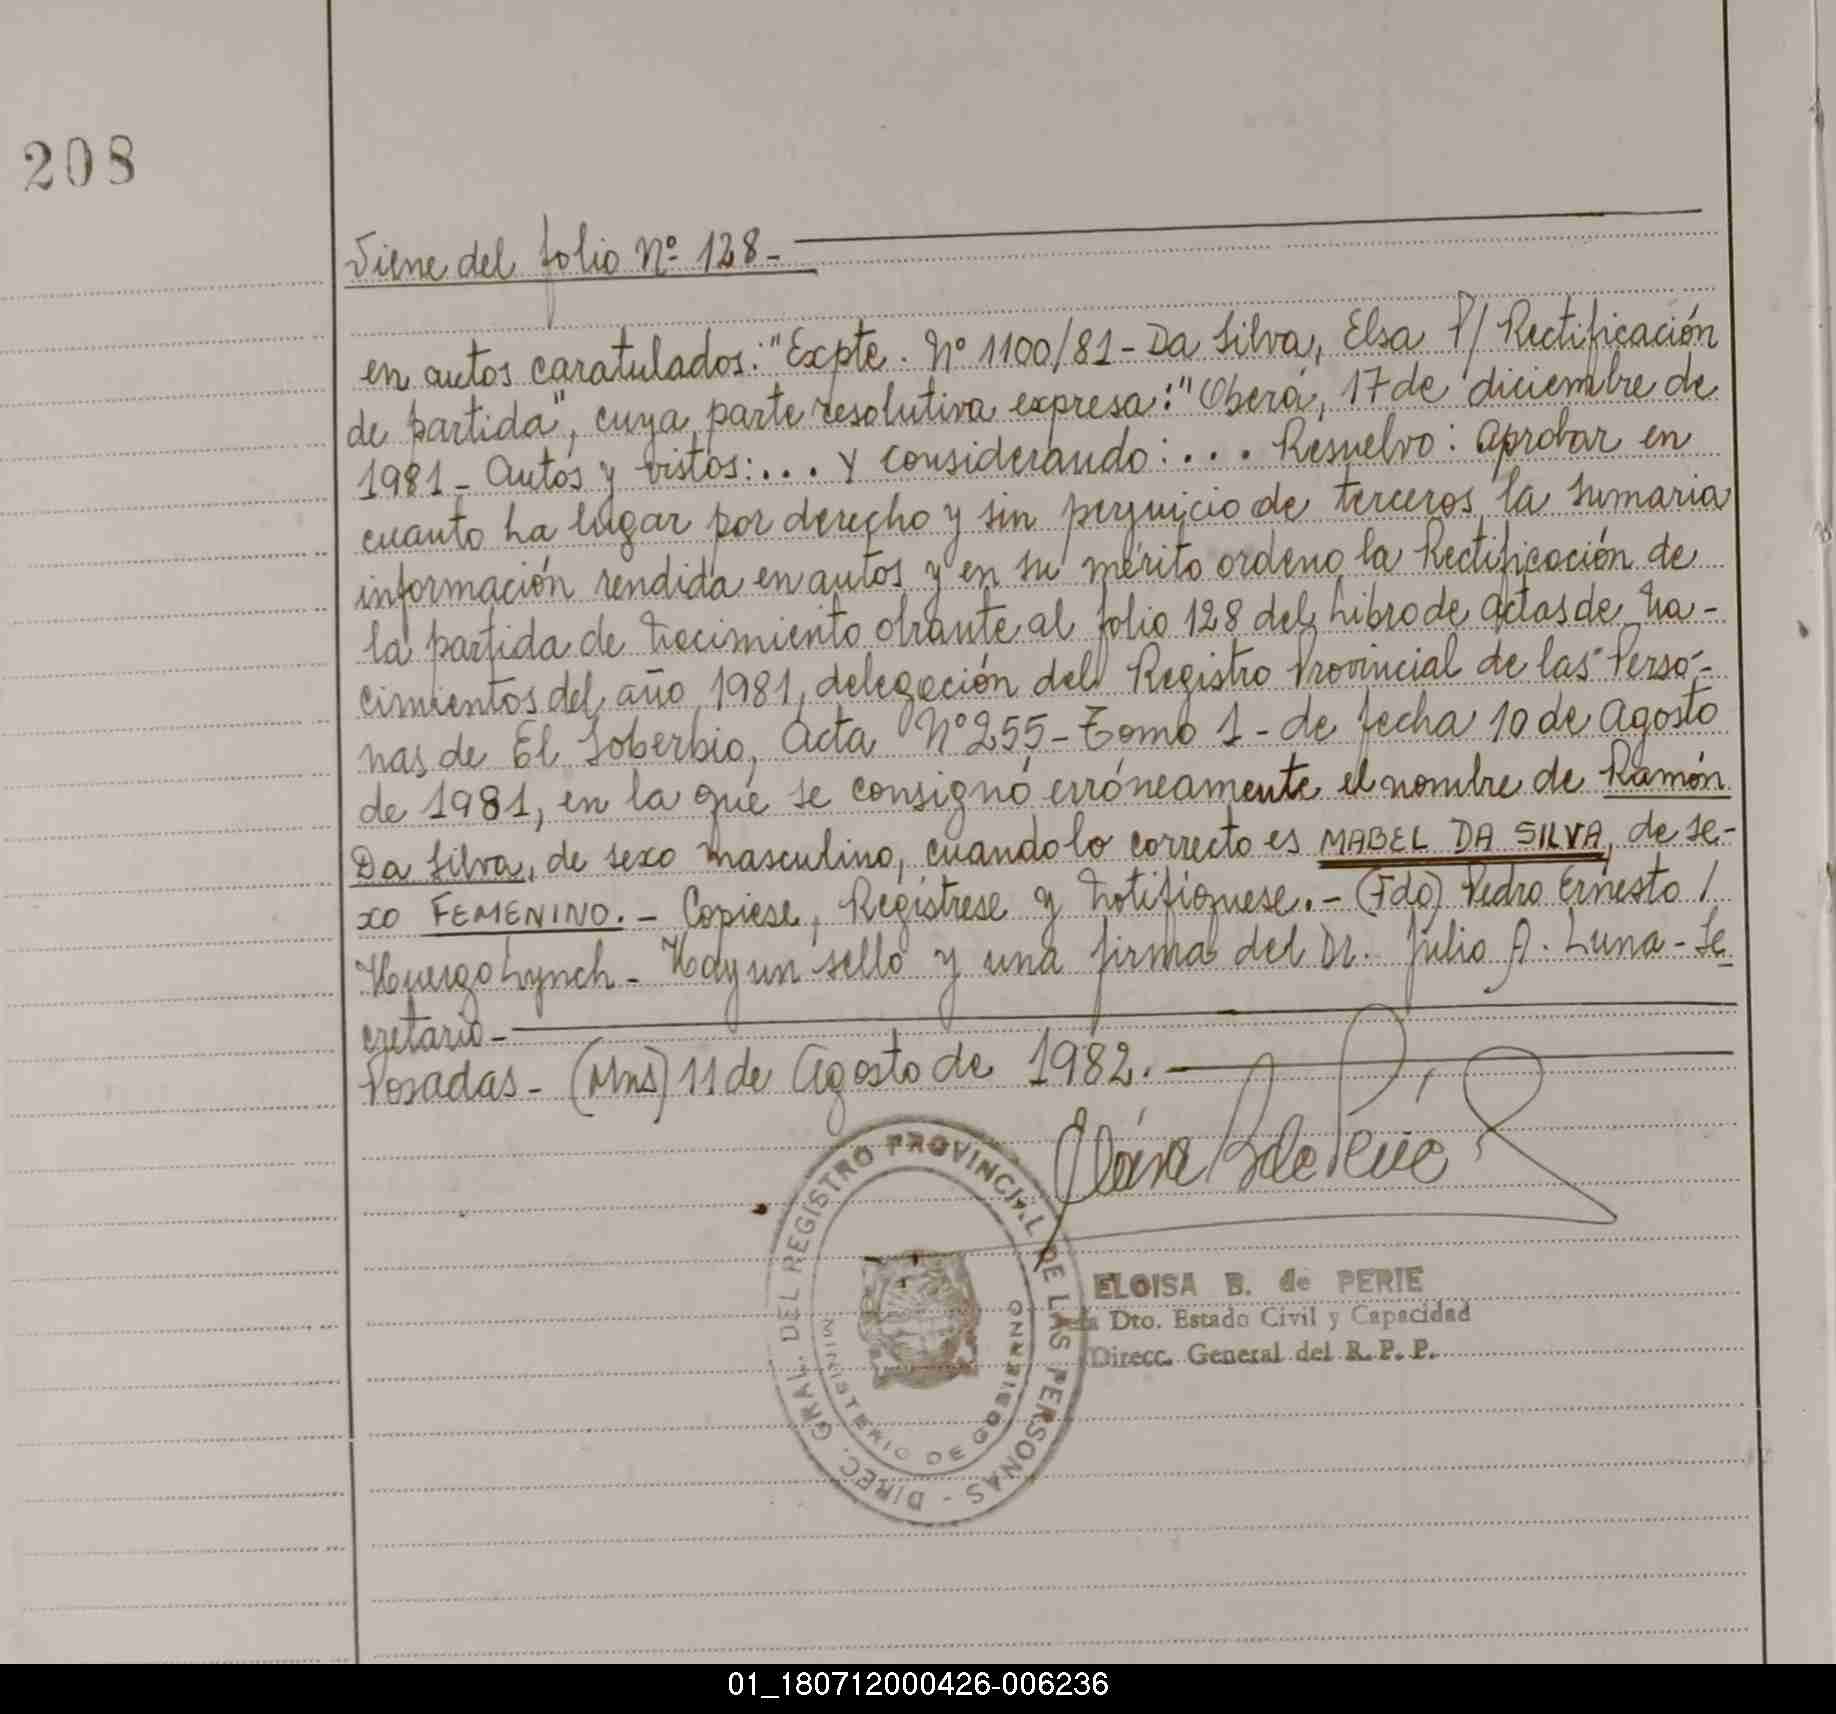 208
Viene del folio Nº 128-
en autos caratulados: "Expte. Nº 1100/81 - Da Silva, Elsa P/ Rectificación
de partida", cuya parte resolutiva expresa: "Oberá, 17 de diciembre de
1981 - Autos y vistos: ... y considerando: ... Resuelvo: Aprobar en
cuanto ha lugar por derecho y sin perjuicio de terceros la sumaria
información rendida en autos y en su mérito ordeno la Rectificación de
la partida de Nacimiento obrante al folio 128 del Libro de Actas de Na-
cimientos del año 1981, delegación del Registro Provincial de las Perso-
nas de El Soberbio, Acta Nº 255 - Tomo 1 - de fecha 10 de Agosto
de 1981, en la que se consignó erróneamente el nombre de Ramón
Da Silva, de sexo masculino, cuando lo correcto es MABEL DA SILVA, de se-
xo FEMENINO. - Copiese, Regístrese y Notifíquese. - (Fdo) Pedro Ernesto /
Huergo Lynch - Hay un sello y una firma del Dr. Julio A. Luna - Se
cretario -
Posadas - (Mns) 11 de Agosto de 1982. -
DIREC. GRAL. DEL REGISTRO PROVINCIAL DE LAS PERSONAS -
MINISTERIO DE GOBIERNO
ELOISA B. de PERIE
Dto. Estado Civil y Capacidad
Direcc. General del R. P. P.
01_180712000426-006236